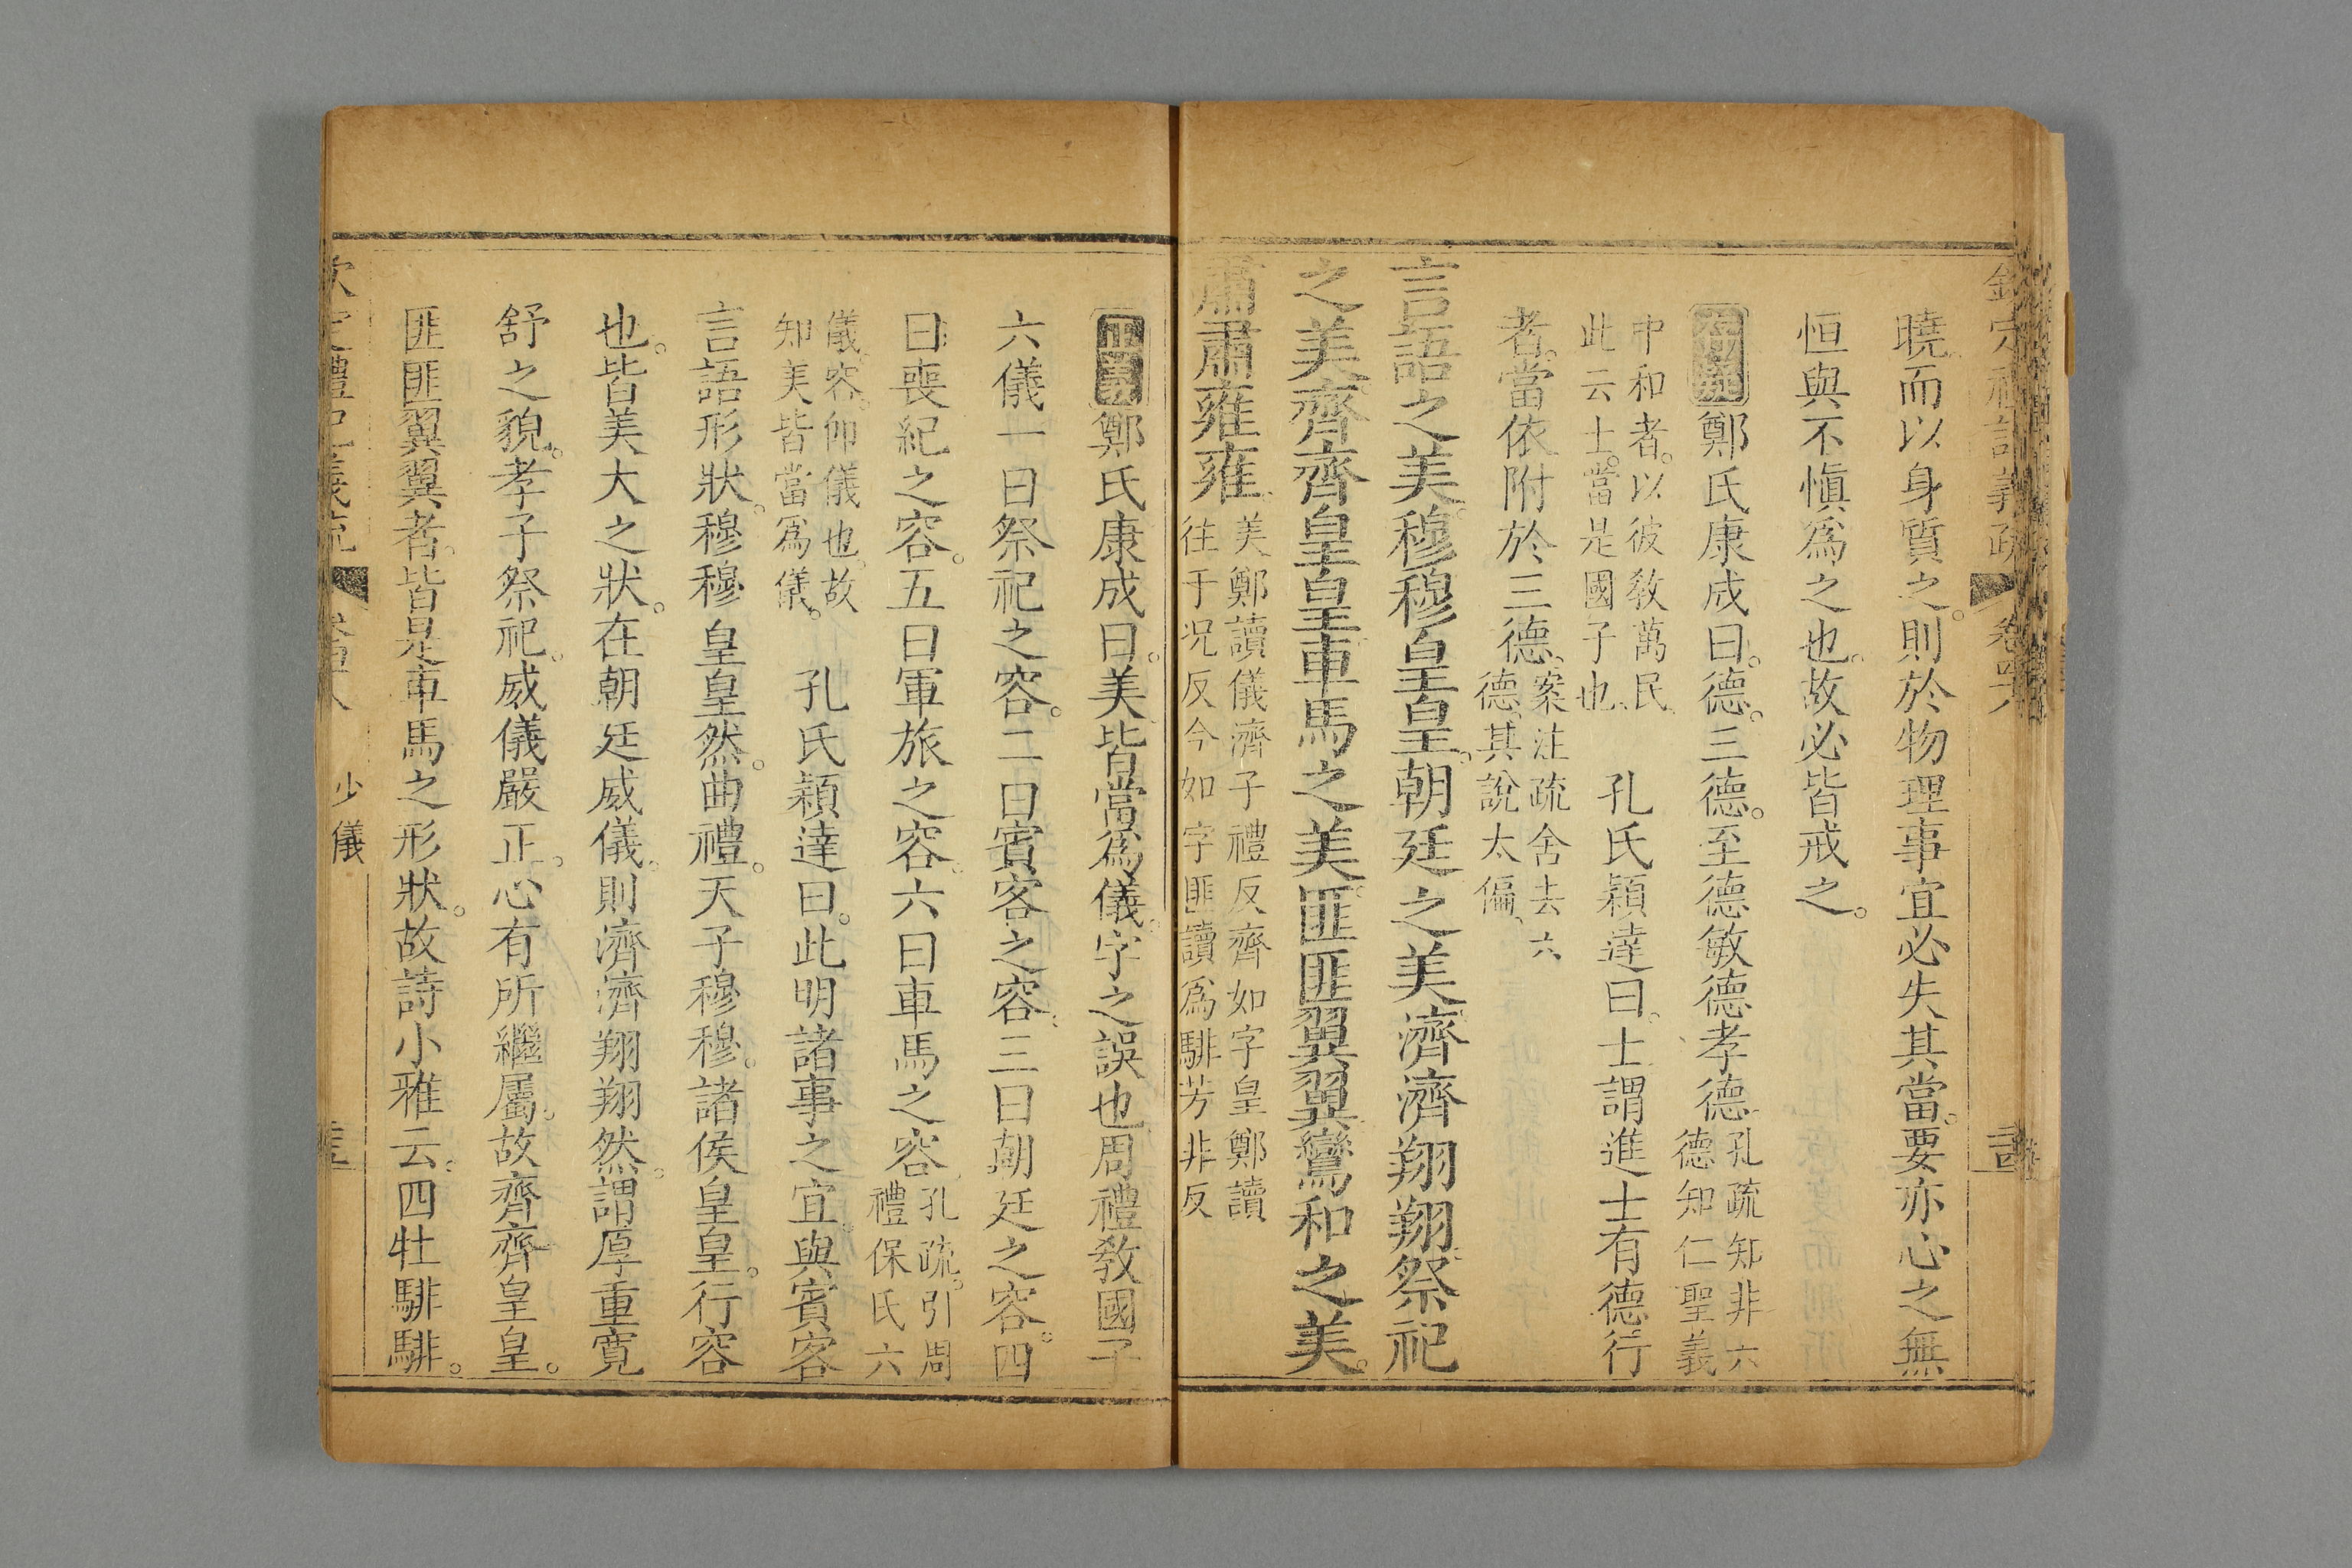 曉。而以身質之。則於物理事宜必失其當。要亦心之無
恒與不愼爲之也。故必皆戒之。
存疑 鄭氏康成曰。德。三德。至德敏德孝德。孔疏知非六
德知仁聖義
中和者。以彼敎萬民
此云士。當是國子也。
孔氏穎達曰。士謂進士有德行
者。當依附於三德。案注疏舍去六
德。其說太偏。
言語之美。穆穆皇皇。朝廷之美。濟濟翔翔。祭祀
之美。齊齊皇皇。車馬之美。匪匪翼翼。鸞和之美。
肅肅雍雍。美鄭讀儀濟子禮反齊如字皇鄭讀
往于况反今如字匪讀爲騑芳非反
正義 鄭氏康成曰。美皆當爲儀。字之誤也。周禮敎國子
六儀一曰祭祀之容。二曰賓客之容。三曰朝廷之容。四
曰喪紀之容。五曰軍旅之容。六曰車馬之容。孔疏。引周
禮保氏六
儀。容。卽儀也。故
知美皆當爲儀。
孔氏穎達曰。此明諸事之宜。與賓客
言語形狀。穆穆皇皇然。曲禮。天子穆穆。諸侯皇皇。行容
也。皆美大之狀。在朝廷威儀。則濟濟翔翔然。謂厚重寬
舒之貌。孝子祭祀。威儀嚴正。心有所繼屬。故齊齊皇皇。
匪匪翼翼者。皆是車馬之形狀。故詩小雅云。四牡騑騑。
少儀